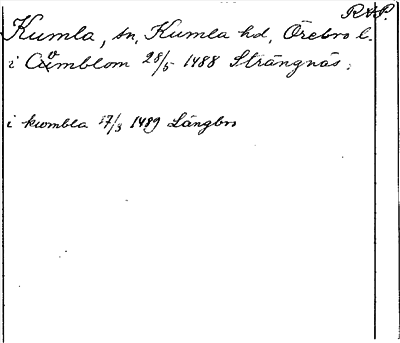 R&P.
Kumla, sn, Kumla hd, Örebro l.
i Cůmblom 28/5 1488 Strängnäs;
i kwmbla 17/3 1489 Längbro